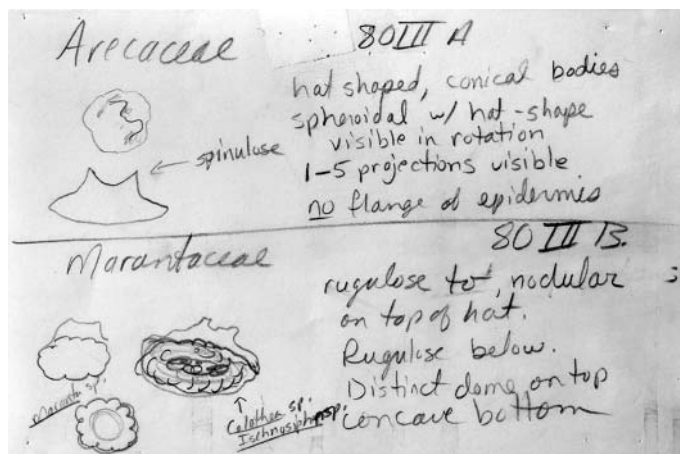 Arecaceae
80 III A
hat shaped, conical bodies
spheroidal w/ hat-shape
visible in rotation
1-5 projections visible
no flange of epidermis
← spinulose
Marantaceae
80 III B.
rugulose to nodular
on top of hat.
Rugulose below.
Distinct dome on top
concave bottom
Maranta sp.
Calathea sp.
Ischnosiphon sp.